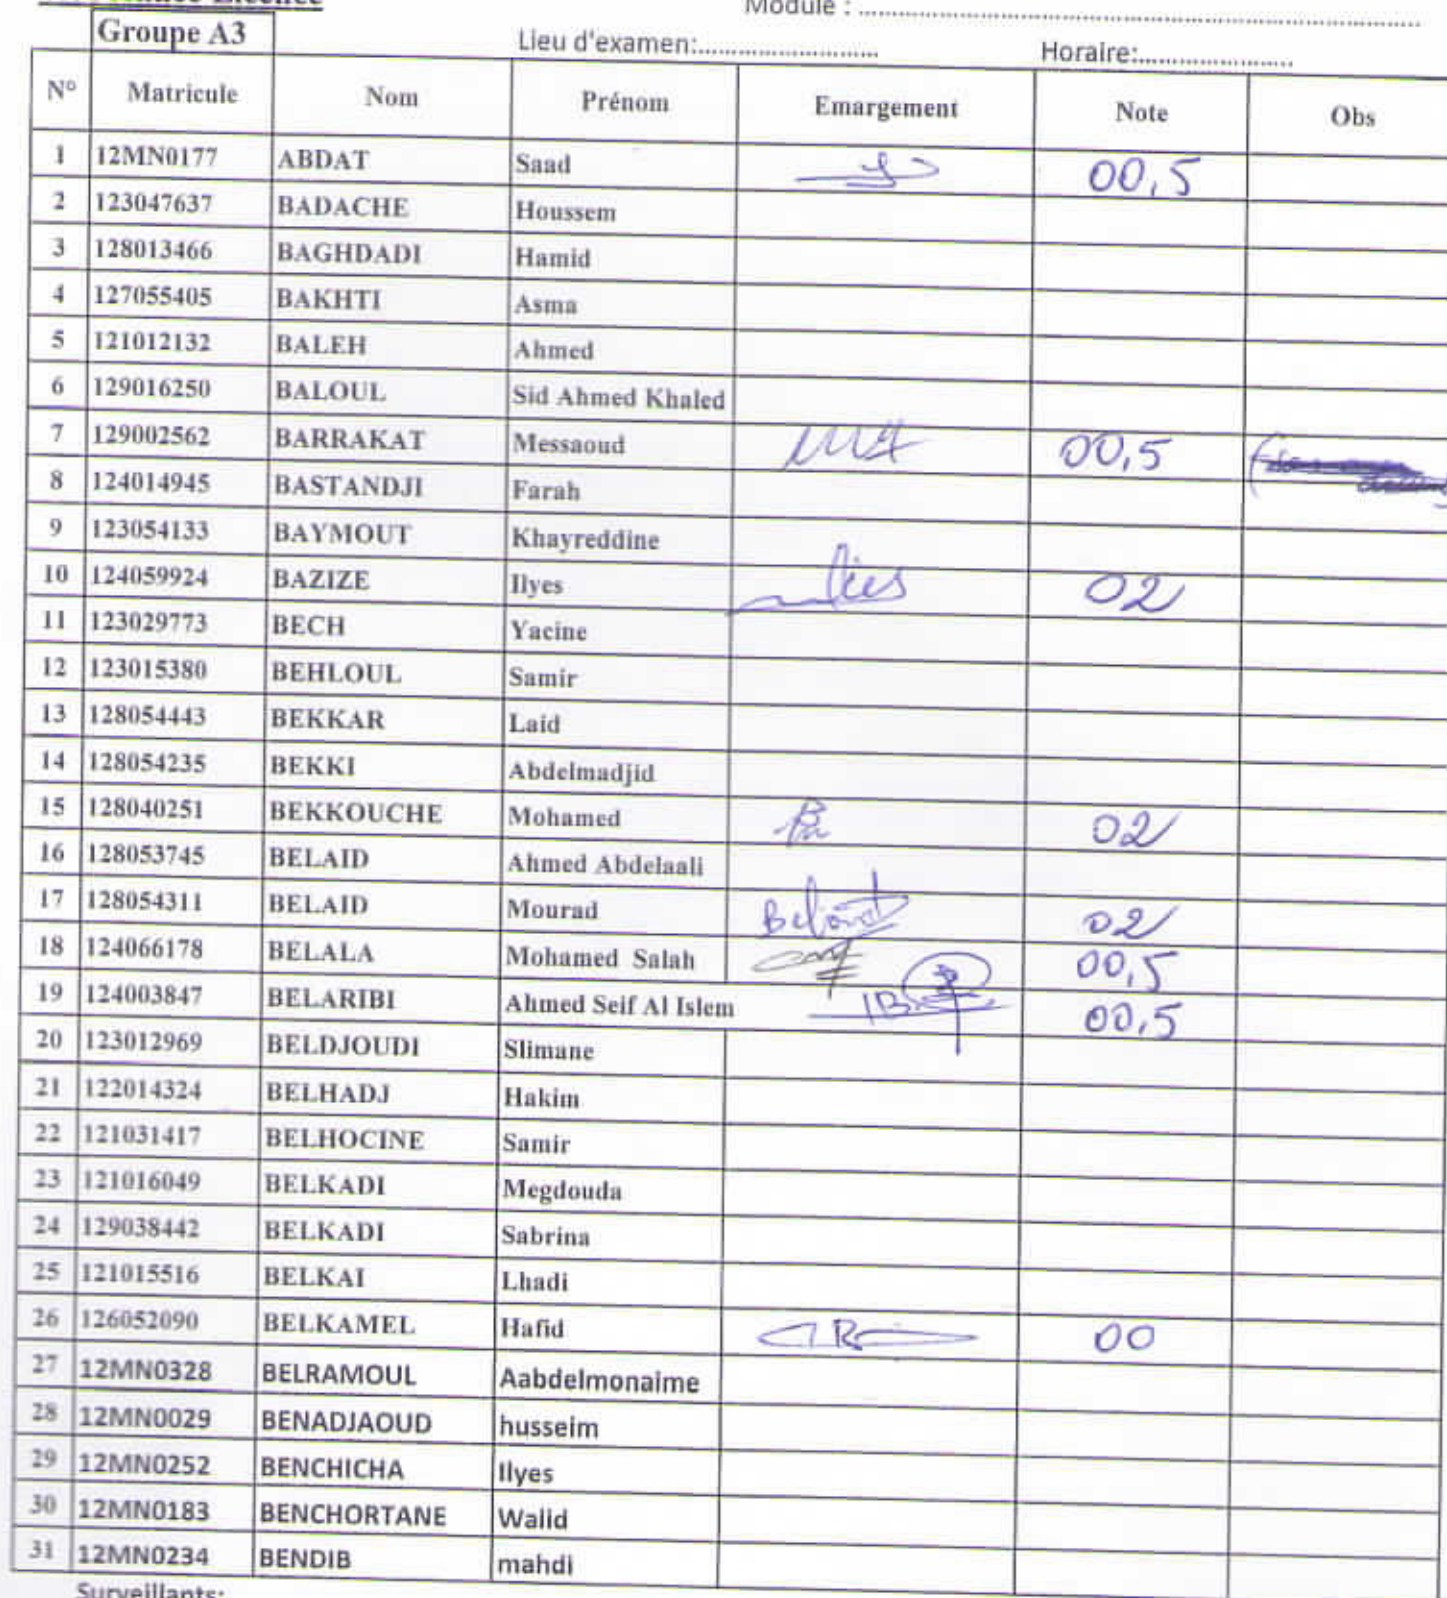 Licence
Module : ........................................
Groupe A3
Lieu d'examen:........................... Horaire:.......................
N° Matricule Nom Prénom Emargement Note Obs
1 12MN0177 ABDAT Saad 00,5
2 123047637 BADACHE Houssem
3 128013466 BAGHDADI Hamid
4 127055405 BAKHTI Asma
5 121012132 BALEH Ahmed
6 129016250 BALOUL Sid Ahmed Khaled
7 129002562 BARRAKAT Messaoud 00,5
8 124014945 BASTANDJI Farah
9 123054133 BAYMOUT Khayreddine
10 124059924 BAZIZE Ilyes 02
11 123029773 BECH Yacine
12 123015380 BEHLOUL Samir
13 128054443 BEKKAR Laid
14 128054235 BEKKI Abdelmadjid
15 128040251 BEKKOUCHE Mohamed 02
16 128053745 BELAID Ahmed Abdelaali
17 128054311 BELAID Mourad 02
18 124066178 BELALA Mohamed Salah 00,5
19 124003847 BELARIBI Ahmed Seif Al Islem 00,5
20 123012969 BELDJOUDI Slimane
21 122014324 BELHADJ Hakim
22 121031417 BELHOCINE Samir
23 121016049 BELKADI Megdouda
24 129038442 BELKADI Sabrina
25 121015516 BELKAI Lhadi
26 126052090 BELKAMEL Hafid 00
27 12MN0328 BELRAMOUL Aabdelmonaime
28 12MN0029 BENADJAOUD husseim
29 12MN0252 BENCHICHA Ilyes
30 12MN0183 BENCHORTANE Walid
31 12MN0234 BENDIB mahdi
Surveillants: